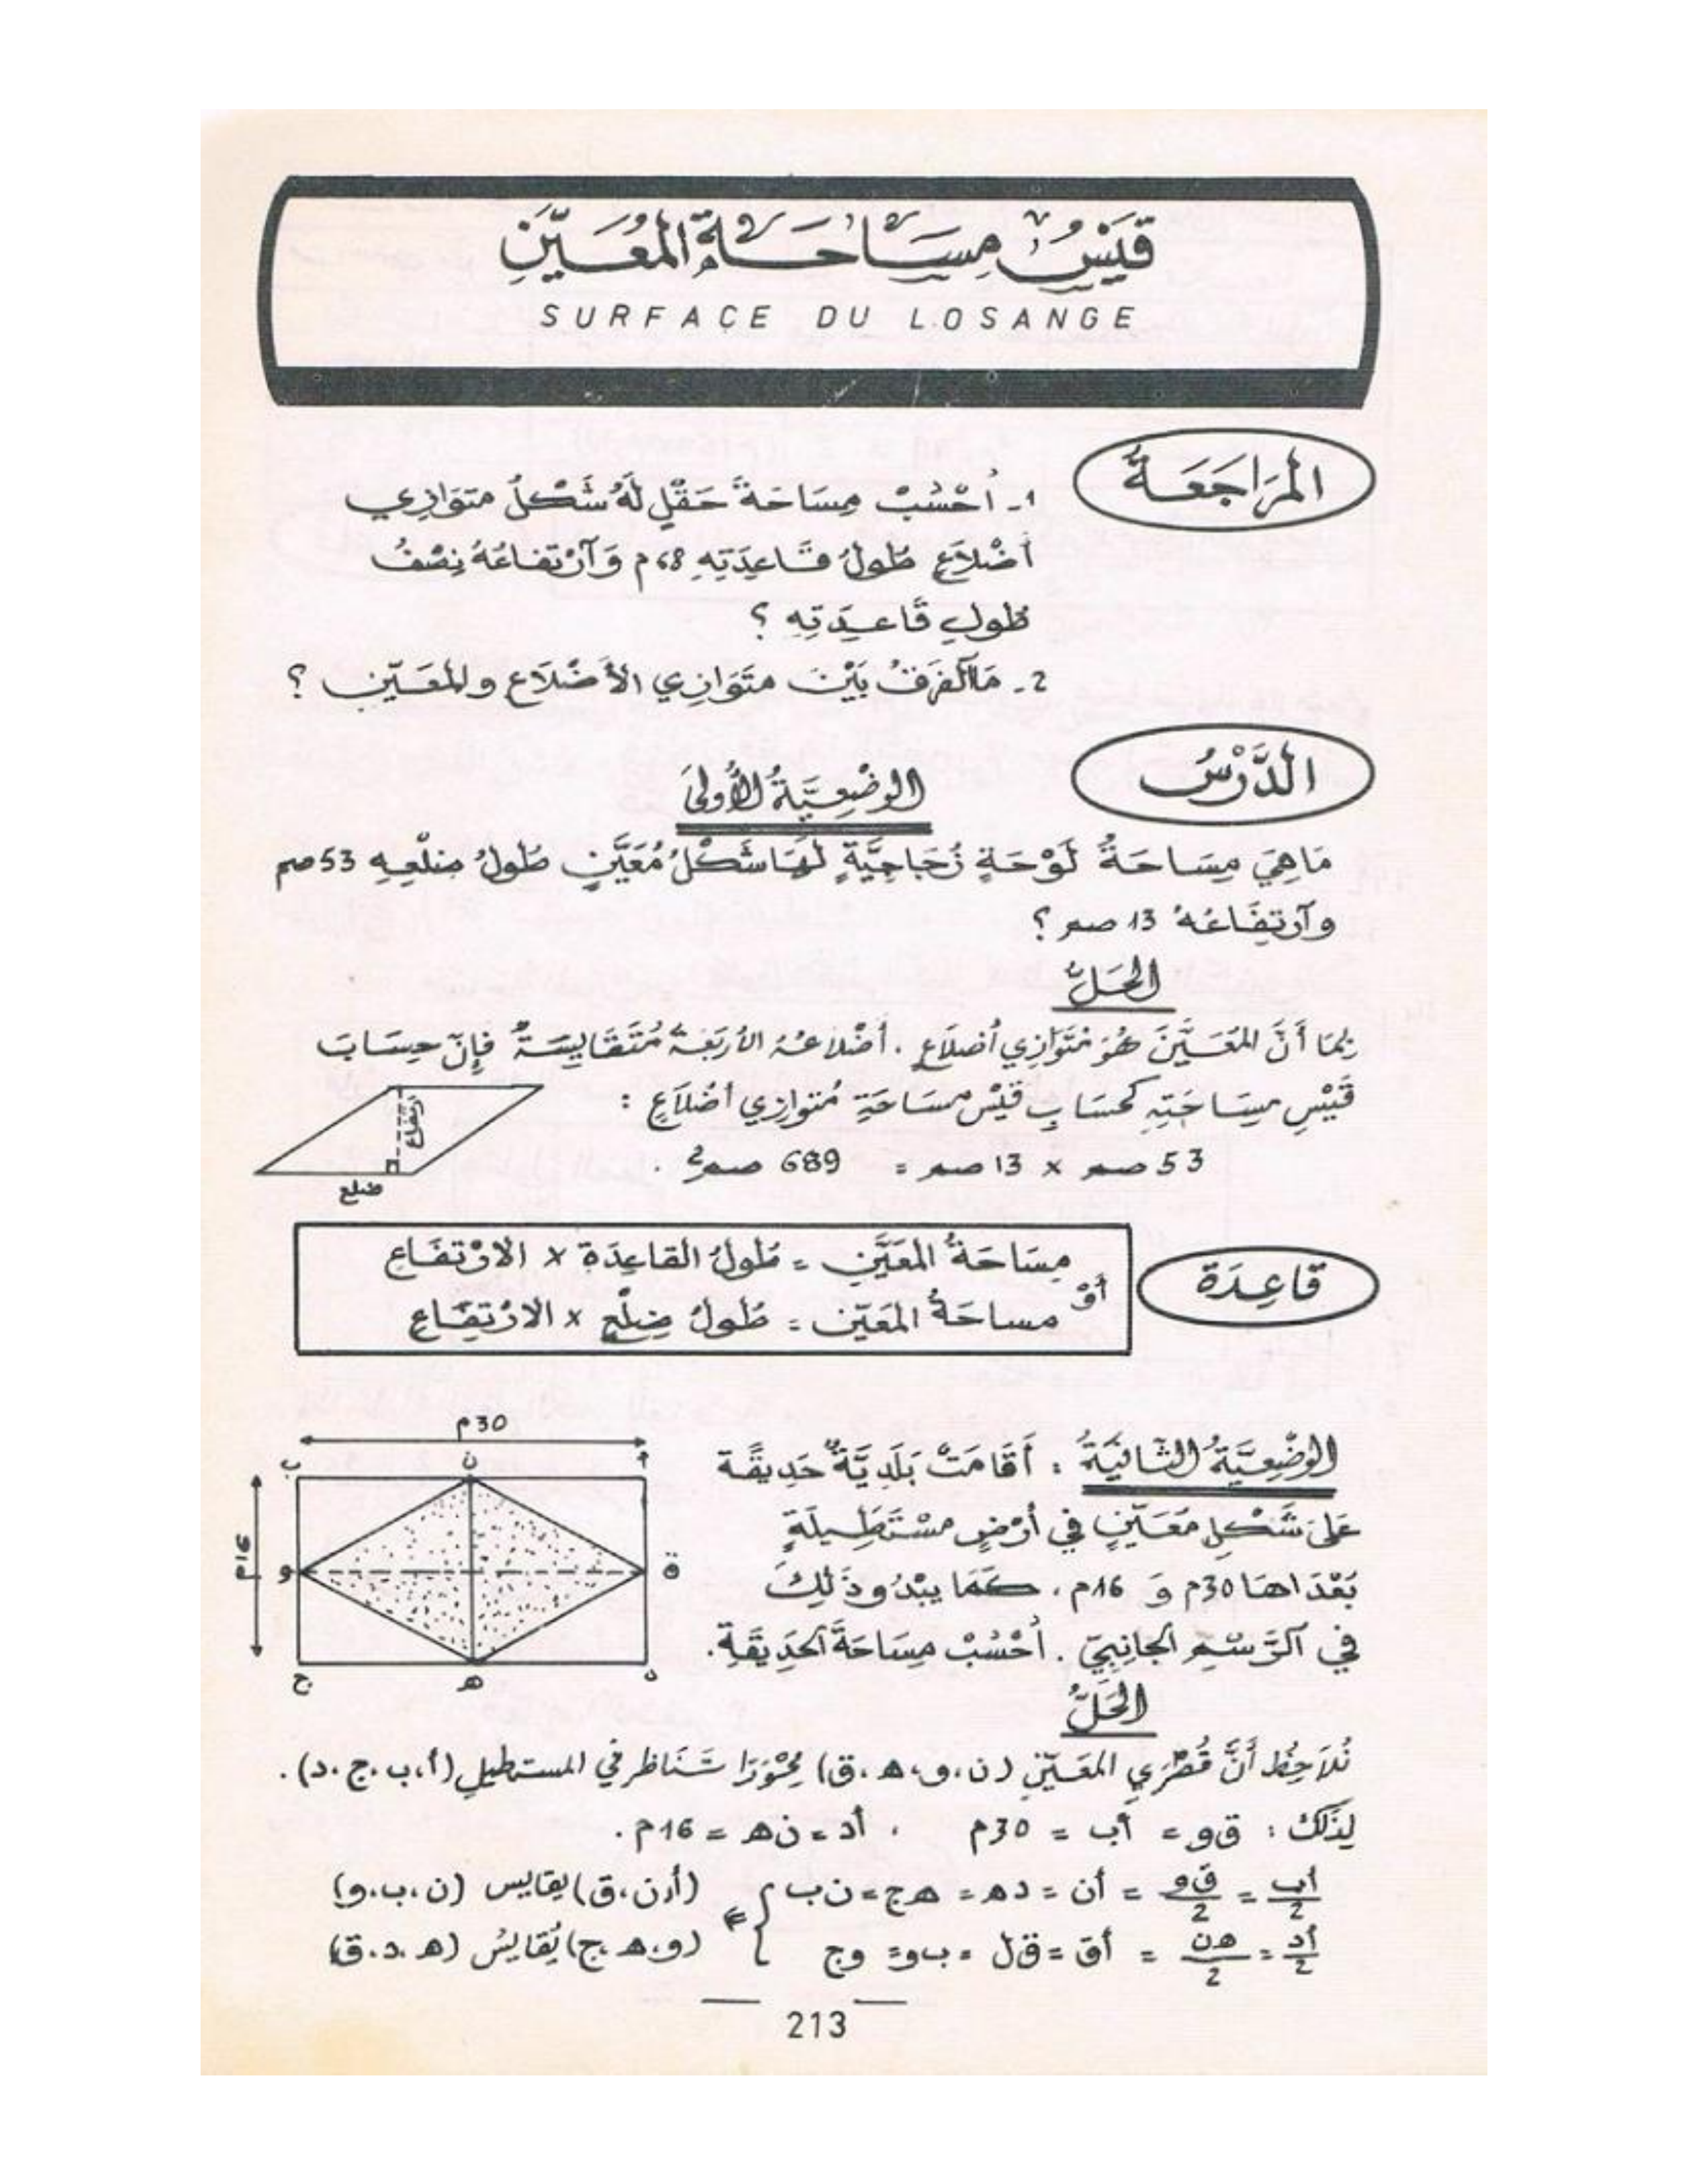 قَيْسُ مِسَاحَةِ الْمُعَيَّنِ
SURFACE DU LOSANGE
الْمُرَاجَعَةُ
1ـ اُحْسُبْ مِسَاحَةَ حَقْلٍ لَهُ شَكْلُ متَوَازِي
أَضْلاَعٍ طُولُ قَاعِدَتِهِ 68م وَآرْتفَاعُهُ نِصْفُ
طُولِ قَاعِدَتِهِ ؟
2ـ مَا الفَرَقُ بَيْنَ متَوَازِي الأَضْلاَعِ والمُعَيّنِ ؟
الدَّرْسُ
الوَضْعِيَّةُ الأُولَى
مَا هِيَ مِسَاحَةُ لَوْحَةٍ زُجَاجِيَّةٍ لَهَا شَكْلُ مُعَيَّنٍ طُولُ ضلْعِهِ 53 صم
وآرتِفَاعُهُ 13 صم ؟
الحَلُّ
بِمَا أَنَّ المُعَيَّنَ هُوَ مُتَوَازِي أَضلاَعٍ . أَضْلاعُهُ الأَرْبَعَةُ مُتَقَايِسَةٌ فإِنّ حِسَابَ
قَيْسِ مِسَاحَتِهِ كَحسَابِ قَيْسِ مِسَاحَةِ مُتوازِي أضْلاَعٍ :
53 صم x 13 صم = 689 صم² .
ارتفاع
ضلع
قَاعِدَة
مِسَاحَةُ المُعَيَّنِ = طُولُ القَاعِدَة x الارْتفَاعِ
أوْ
مساحَةُ المُعَيّن = طُولُ ضِلْعٍ x الارْتِفَاعِ
الوَضْعِيَّةُ الثَّانِيَةُ : أَقَامَتْ بَلَدِيَّةٌ حَدِيقَة
عَلَى شَكْلِ مُعَيّنٍ في أَرْضٍ مسْتَطِيلَةٍ
بُعْدَاهَا 30م وَ 16م ، كَمَا يَبْدُو ذَلِكَ
في آلرَّسْمِ الجَانِبِيّ . اُحْسُبْ مِسَاحَةَ آلحَدِيقَةِ.
30م
أ
ن
ب
16م
و
ق
ج
ه
د
الحَلُّ
نُلاَحِظُ أَنَّ قُطْرَي المُعَيّنِ (ن،و،ه،ق) مِحْوَرَا تَنَاظر في المستطيلِ (أ،ب،ج،د) .
لِذَلكَ : ق و = أب = 30م ، أد = ن ه = 16م .
أب/2 = ق و/2 = أن = د ه = ه ج = ن ب } ⇐ (أ،ن،ق) يقايس (ن،ب،و)
أد/2 = ه ن/2 = أق = ق ل = ب و = و ج (و،ه،ج) يُقَايسُ (ه،د،ق)
213